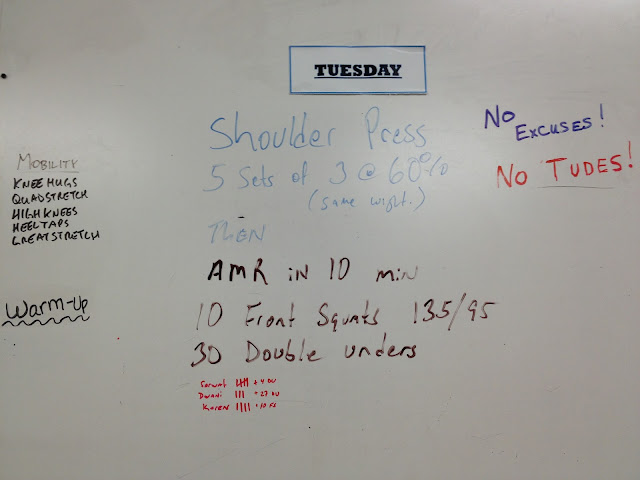 TUESDAY
Shoulder Press
5 Sets of 3 @ 60%
(same wight.)
THEN
AMR in 10 min
10 Front Squats 135/95
30 Double unders
+ 4 DU
Dwani III + 27 DU
Karen IIII + 10 FS
No Excuses!
No TUDES!
MOBILITY
KNEE HUGS
QUADSTRETCH
HIGH KNEES
HEEL TAPS
GREATSTRETCH
Warm-Up